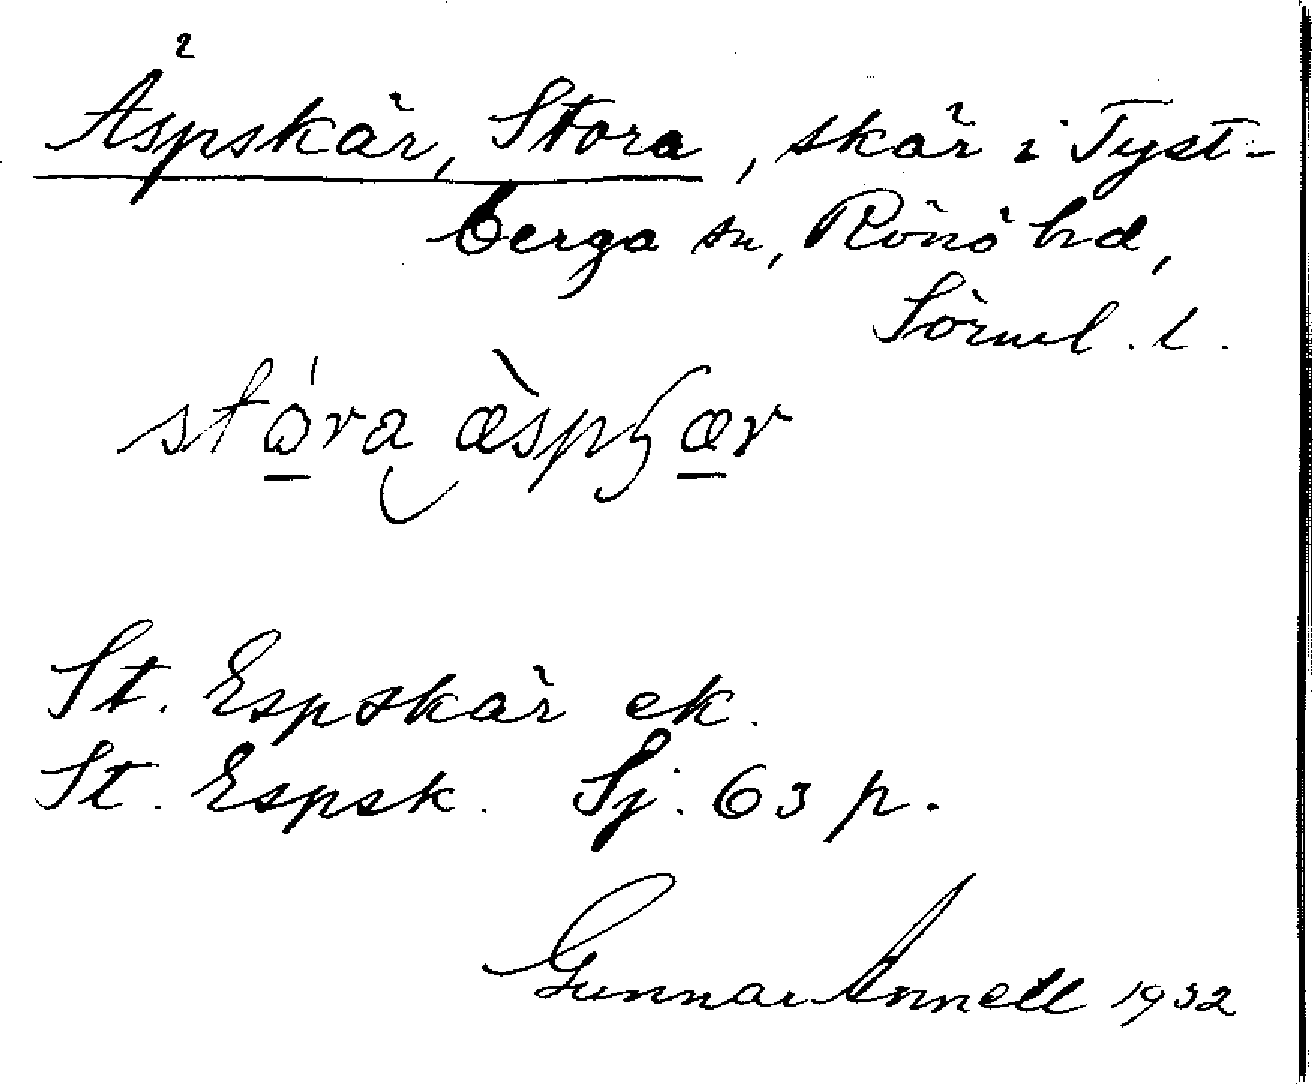 2
Äspskär, Stora, skär i Tyst-
berga sn, Rönö hd,
Sörml. l.
stóra æ̀spɧær
St. Espskär ek.
St. Espsk. Sj. 63 p.
Gunnar Annell 1932